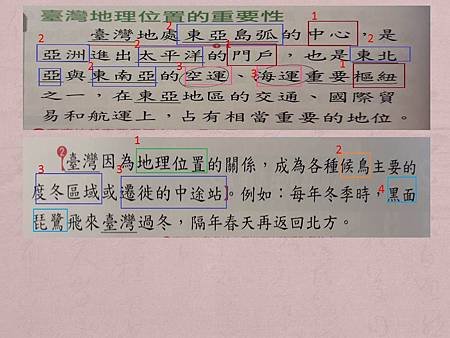 臺灣地理位置的重要性
臺灣地處東亞島弧的中心，是
亞洲進出太平洋的門戶，也是東北
亞與東南亞的空運、海運重要樞紐
之一，在東亞地區的交通、國際貿
易和航運上，占有相當重要的地位。
2 臺灣因為地理位置的關係，成為各種候鳥主要的
度冬區域或遷徙的中途站。例如：每年冬季時，黑面
琵鷺飛來臺灣過冬，隔年春天再返回北方。